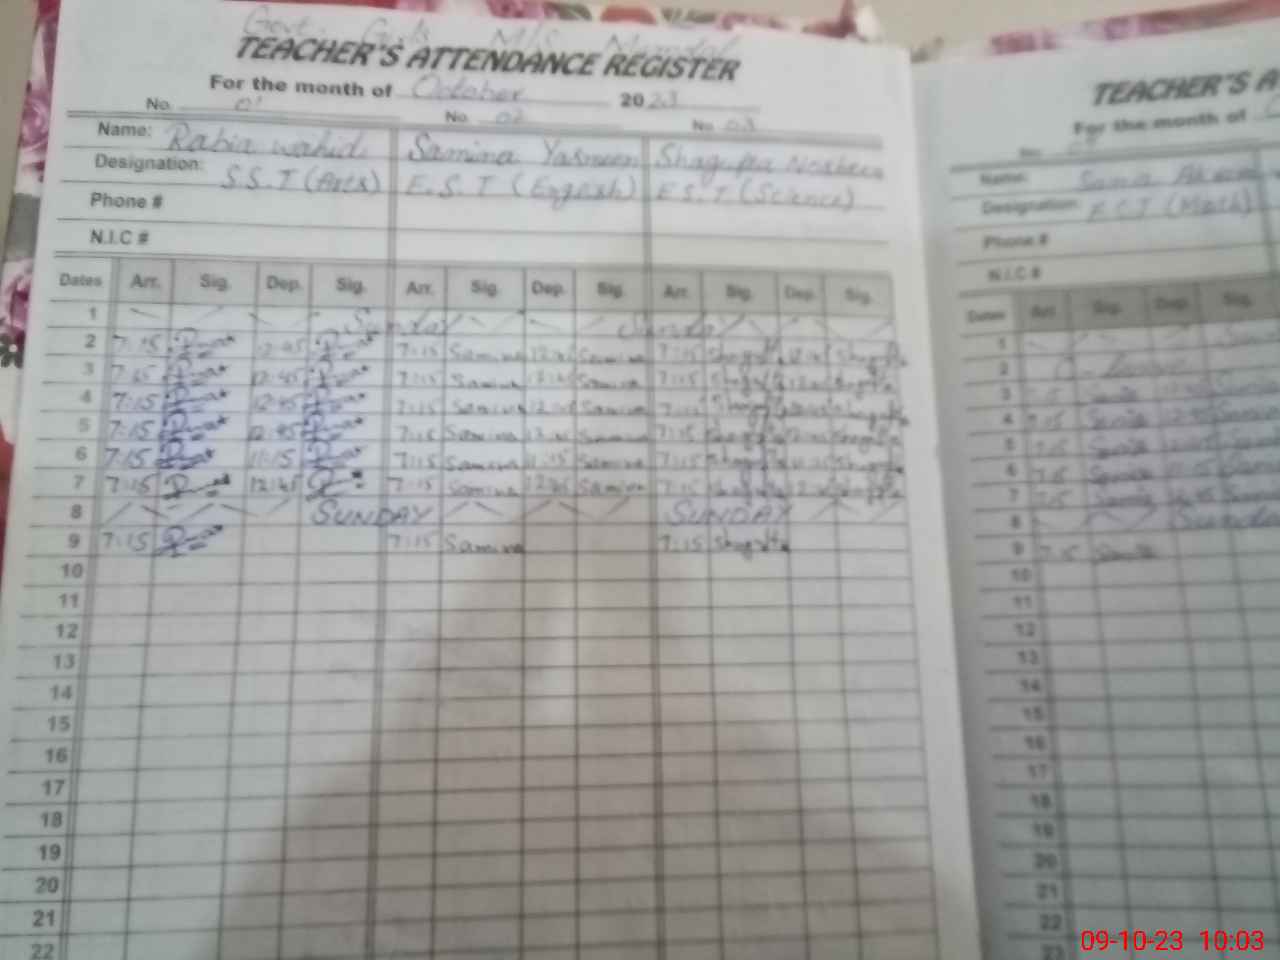 Govt. Girls M/S
TEACHER'S ATTENDANCE REGISTER
For the month of October 2023
No. 01 No. 02 No. 03
Name: Rabia Wahid Samina Yasmeen
Designation: S.S.T (Arts) E.S.T (English) E.S.T (Science)
Phone #
N.I.C #
Dates Arr. Sig. Dep. Sig. Arr. Sig. Dep. Sig. Arr. Sig. Dep. Sig.
1 Sunday Sunday
2 7:15 12:45 7:15 Samina 12:45 Samina 7:15 Shagufta 12:45 Shagufta
3 7:15 12:45 7:15 Samina 12:45 Samina 7:15 Shagufta 12:45 Shagufta
4 7:15 12:45 7:15 Samina 12:45 Samina 7:15 Shagufta 12:45 Shagufta
5 7:15 12:45 7:15 Samina 12:45 Samina 7:15 Shagufta 12:45 Shagufta
6 7:15 11:15 7:15 Samina 11:15 Samina 7:15 Shagufta 11:15 Shagufta
7 7:15 12:45 7:15 Samina 12:45 Samina 7:15 Shagufta 12:45 Shagufta
8 SUNDAY SUNDAY
9 7:15 7:15 Samina 7:15 Shagufta
10
11
12
13
14
15
16
17
18
19
20
21
22
TEACHER'S A
For the month of
Name: Samia
Designation: E.S.T (Math)
Phone #
N.I.C #
Dates Arr. Sig. Dep. Sig.
1
2
3 7:15 Samia 12:45 Samia
4 7:15 Samia 12:45 Samia
5 7:15 Samia 12:45 Samia
6 7:15 Samia 11:15 Samia
7 7:15 Samia 12:45 Samia
8 Sunday
9 7:15 Samia
10
11
12
13
14
15
16
17
18
19
20
21
22
23
09-10-23 10:03